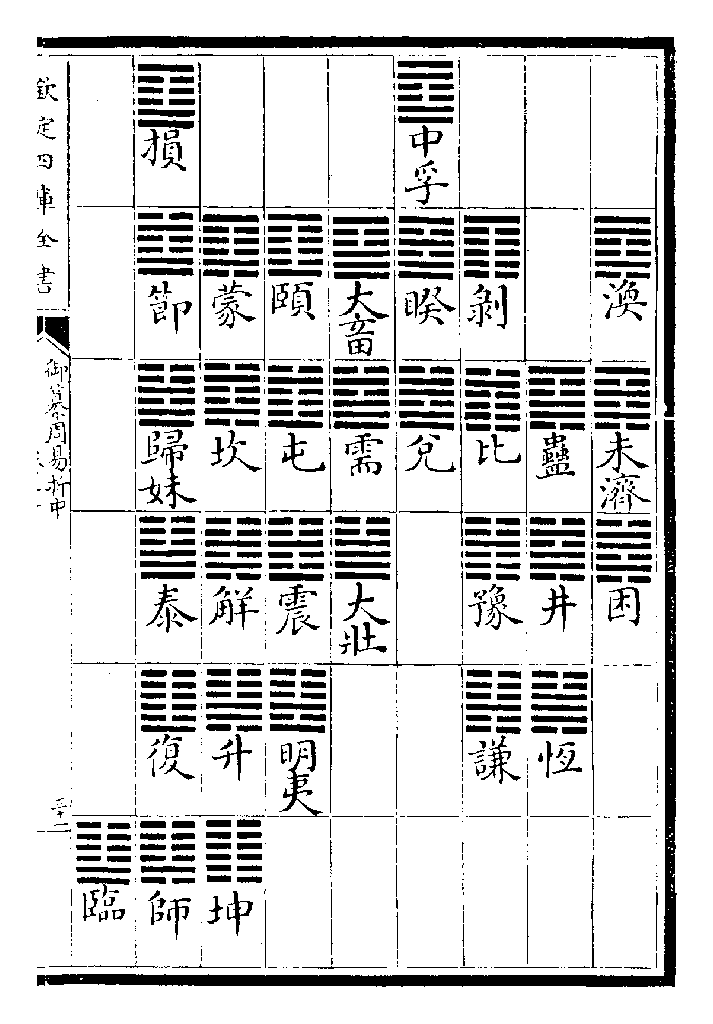 渙
未濟
困
蠱
井
恆
剝
比
豫
謙
中孚
睽
兌
大畜
需
大壯
頤
屯
震
明夷
蒙
坎
解
升
坤
損
節
歸妹
泰
復
師
臨
欽定四庫全書
御纂周易折中